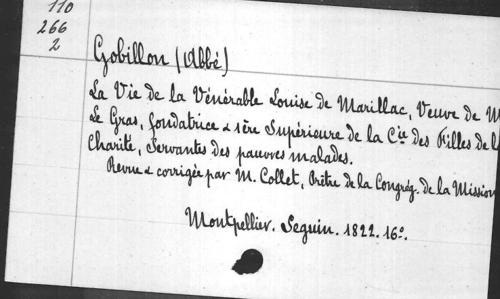 110
266
2
Gobillon (Abbé)
La Vie de la Vénérable Louise de Marillac, Veuve de M
Le Gras, fondatrice & 1ère Supérieure de la Cie des Filles de l
Charité, Servantes des pauvres malades.
Revue & corrigée par M. Collet, Prêtre de la Congrég. de la Mission
Montpellier. Seguin. 1822. 16º.